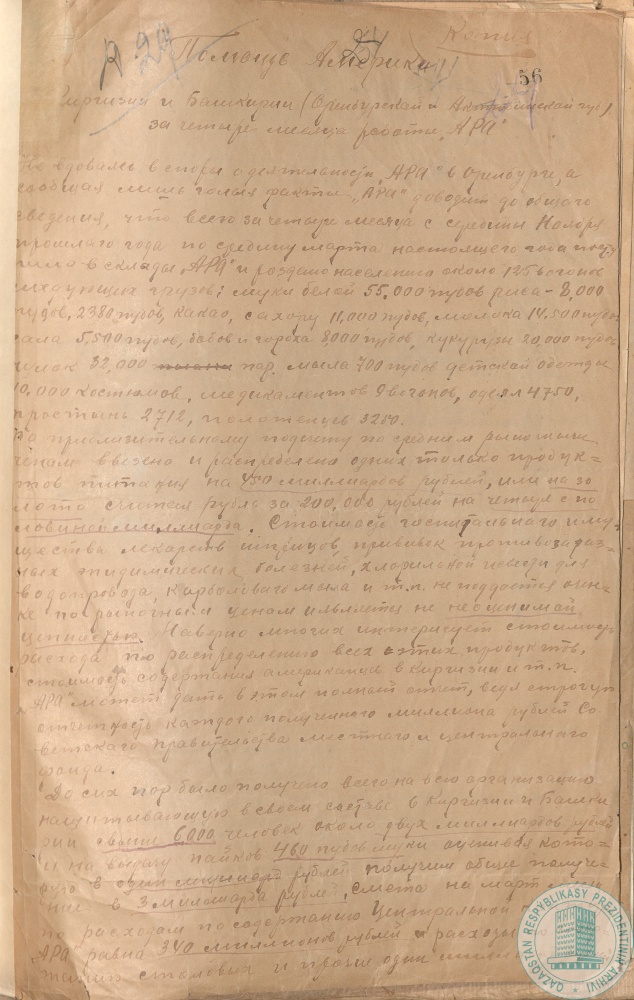 Копия
Помощь Америки
56
Киргизии и Башкирии (Оренбурской и Актюбинской губ)
за четыре месяца работы „АРА"
Не вдаваясь в споры о деятельности „АРА" в Оренбурге, а
сообщая лишь голые факты „АРА" доводит до общего
сведения, что всего за четыре месяца с середины Ноября
прошлаго года по средину марта настоящего года посту
пило в склады „АРА" и роздано населению около 125 вагонов
следующих грузов: муки белой 55,000 пудов риса - 8,000
пудов, 2380 пудов, какао, сахару 11,000 пудов, молока 14.500 пудов
сала 5,500 пудов, бобов и гороха 8000 пудов, кукурузы 20,000 пудов
чулок 32,000 пар. мыла 700 пудов детской одежды
10,000 костюмов, медикаментов 9 вагонов, одеял 4750,
простынь 2712, полотенцев 3250.
По приблизительному подсчету по средним рыночным
ценам ввезено и распределено одних только продук=
тов питания на 450 миллиардов рублей, или на зо
лото считая рубль за 200,000 рублей на четыре с по
ловиной миллиарда. Стоимость госпитального иму
щества лекарств шприцов прививок противозараз=
ных эпидимических болезней, хлорильной извести для
водопровода, карболового мыла и т.п. не поддается оцен=
ке по рыночным ценам и является не неоценимой
ценностью. Наверно многих интересует стоимость
расхода по распределению всех этих продуктов,
стоимость содержания американцев в Киргизии и т.п.
„АРА" может дать в этом полный отчет, ведя строгую
отчетность каждого полученного миллиона рублей Со
ветского правительства местного и центрального
фонда.
До сих пор было получено всего на всю организацию
насчитывающую в своем составе в Киргизии и Башки
рии свыше 6000 человек около двух миллиардов рублей
и на выдачу пайков 460 пудов муки оценивая кото=
рую в один миллиард рублей получим общие получе=
ние в 3 миллиарда рублей, смета на март
по расходам по содержанию Центральной
„АРА" равна 340 миллионов рублей и расходы
столовых и один
QAZAQSTAN RESPÝBLIKASY PREZIDENTINIŃ ARHIVI